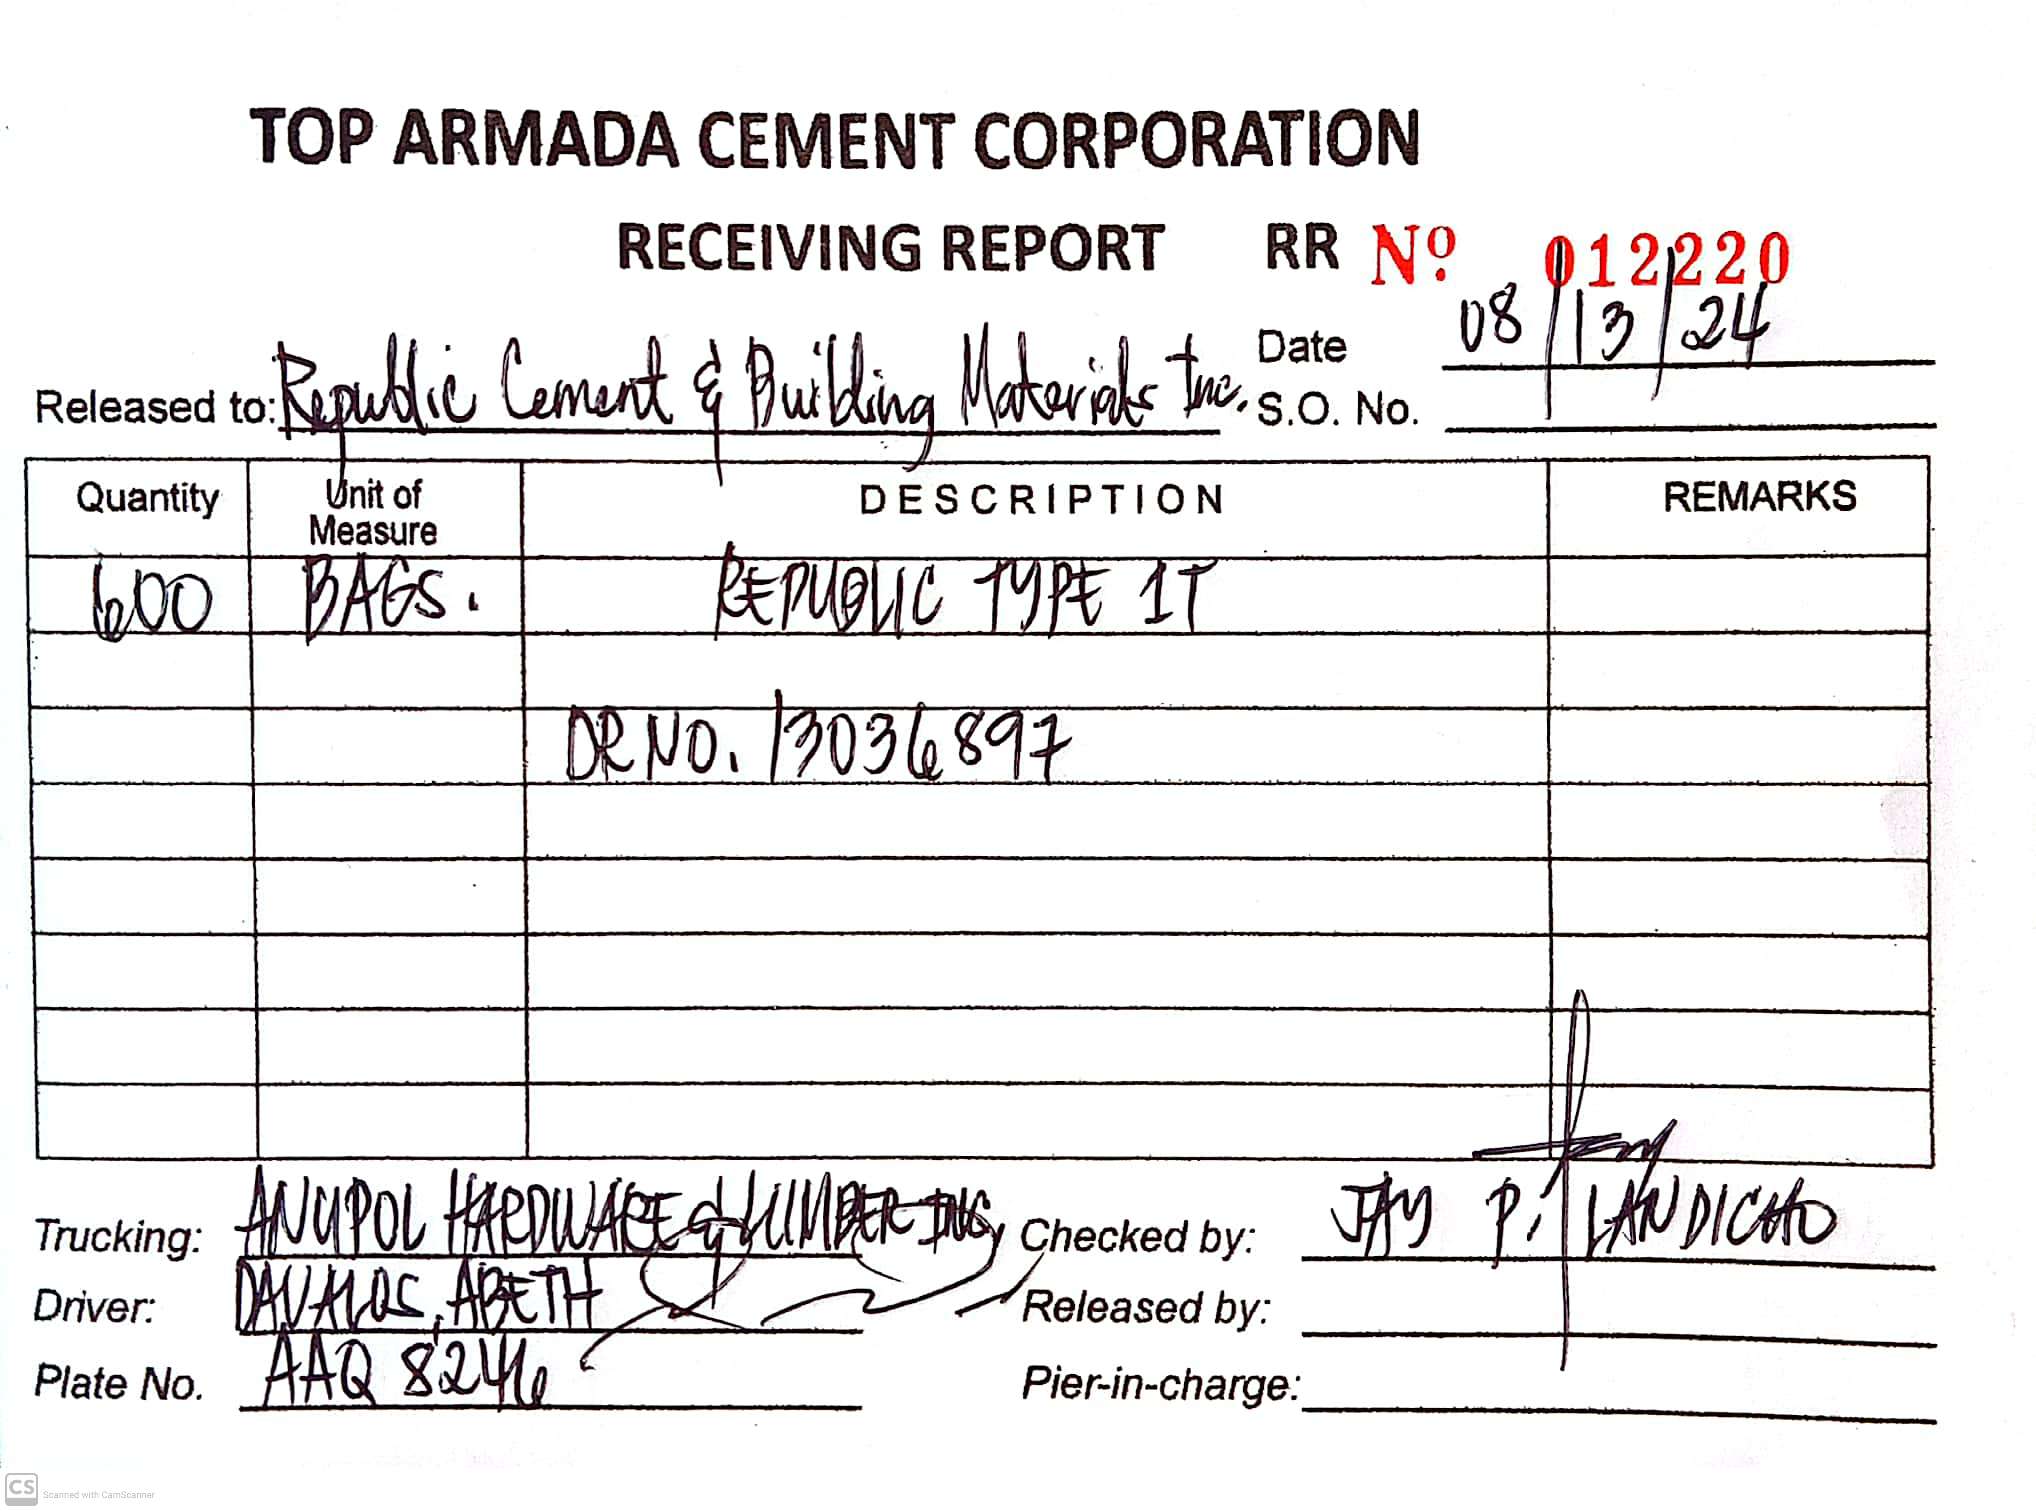 TOP ARMADA CEMENT CORPORATION
RECEIVING REPORT RR Nº 012220
Date 08/13/24
Released to: Republic Cement & Building Materials Inc. S.O. No.
Quantity Unit of Measure DESCRIPTION REMARKS
600 BAGS. REPUBLIC TYPE 1T
DR NO. 13036897
Trucking: ANUPOL HARDWARE & LUMBER INC, Checked by: JAY P. LANDICHO
Driver: DAVALOS, ABETH Released by:
Plate No. AAQ 8246 Pier-in-charge:
CS Scanned with CamScanner